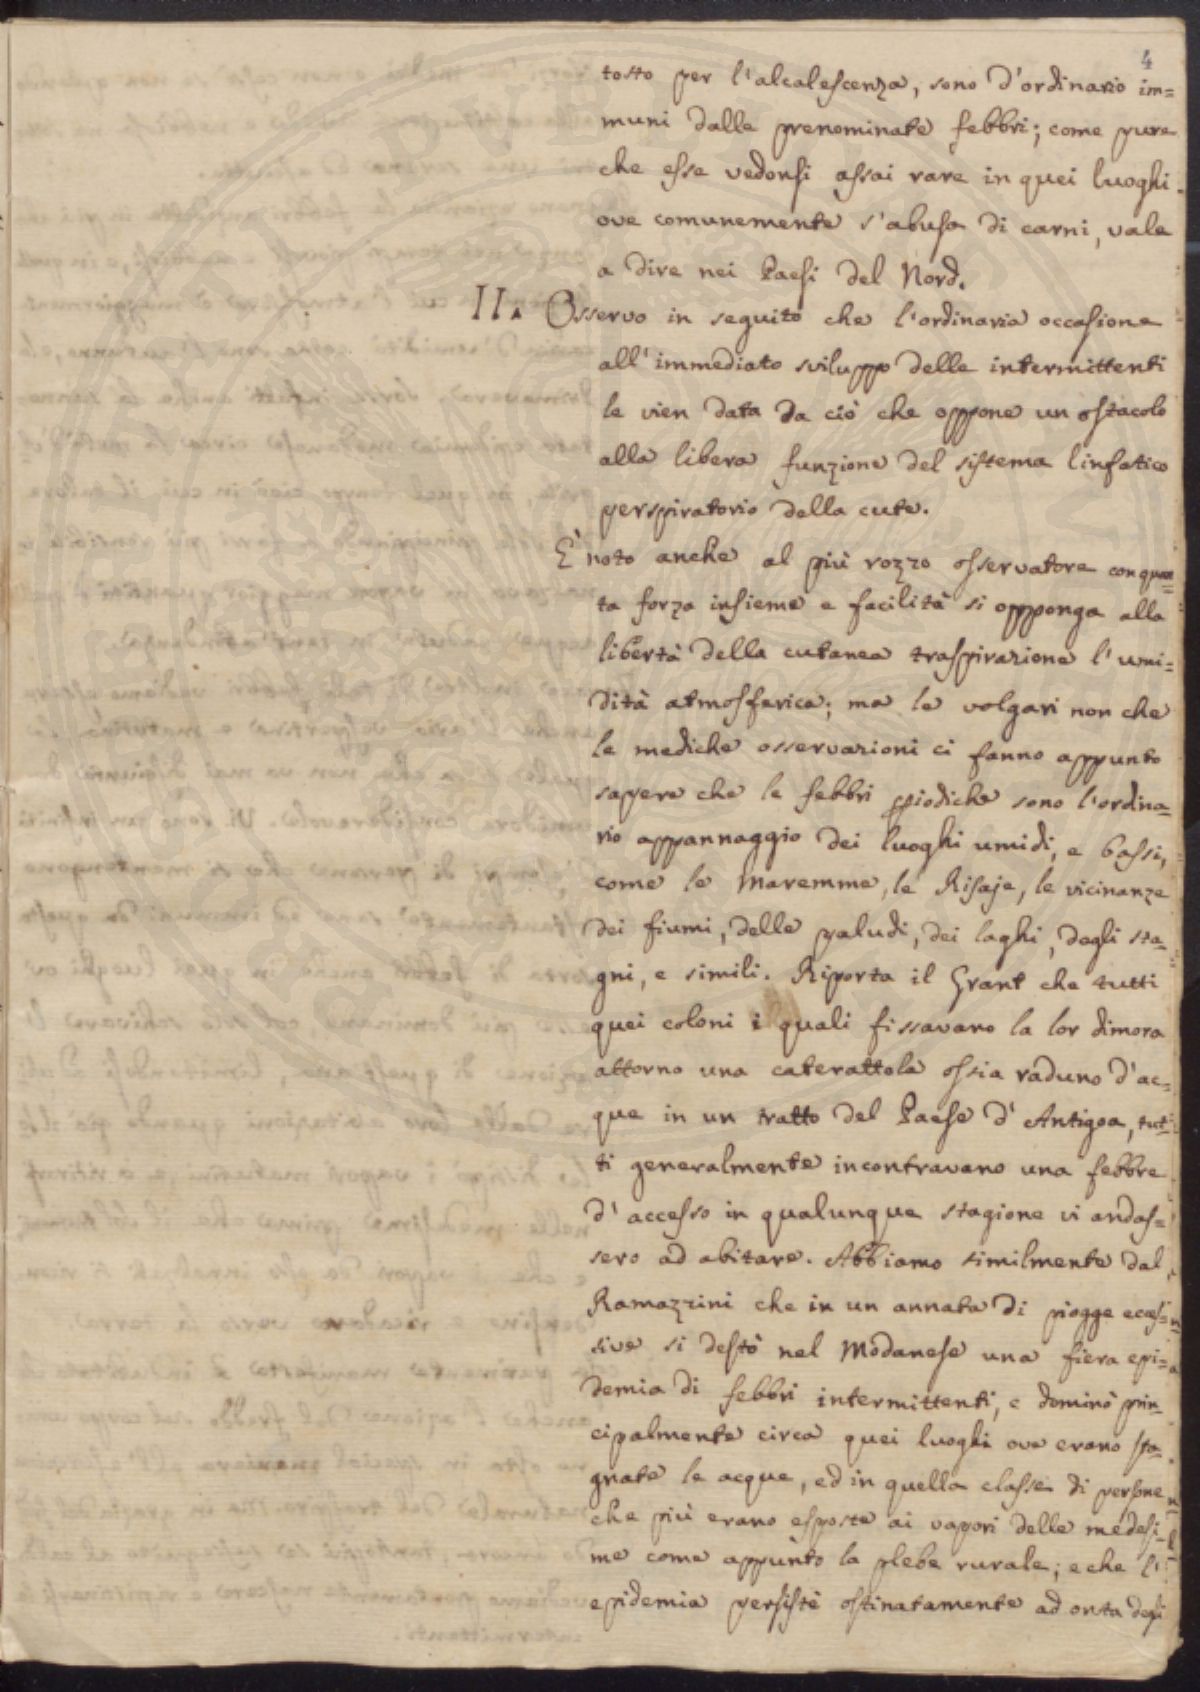 4
tosto per l'alcalescenza, sono d'ordinario im=
muni dalle prenominate febbri; come pure
che esse vedonsi assai rare in quei luoghi
ove comunemente s'abusa di carni, vale
a dire nei Paesi del Nord.
II. Osservo in seguito che l'ordinaria occasione
all'immediato sviluppo delle intermittenti
le vien data da ciò che oppone un ostacolo
alla libera funzione del sistema linfatico
perspiratorio della cute.
E' noto anche al più rozzo osservatore con quan=
ta forza insieme e facilità si opponga alla
libertà della cutanea traspirazione l'umi=
dità atmosferica; ma le volgari non che
le mediche osservazioni ci fanno appunto
sapere che le febbri piodiche sono l'ordina=
rio appannaggio dei luoghi umidi, e bassi,
come le Maremme, le Risaje, le vicinanze
dei fiumi, delle paludi, dei laghi, degli sta=
gni, e simili. Riporta il Grant che tutti
quei coloni i quali fissavano la lor dimora
attorno una caterattola ossia raduno d'ac=
que in un tratto del Paese d'Antigoa, tut=
ti generalmente incontravano una febbre
d'accesso in qualunque stagione vi andas=
sero ad abitare. Abbiamo similmente dal
Ramazzini che in un annata di piogge eces=
sive si destò nel Modanese una fiera epi=
demia di febbri intermittenti, e dominò prin=
cipalmente circa quei luoghi ove erano sta=
gnate le acque, ed in quella classe di persone
che più erano esposte ai vapori delle medesi=
me come appunto la plebe rurale; e che l'
epidemia persistè ostinatamente ad onta degli